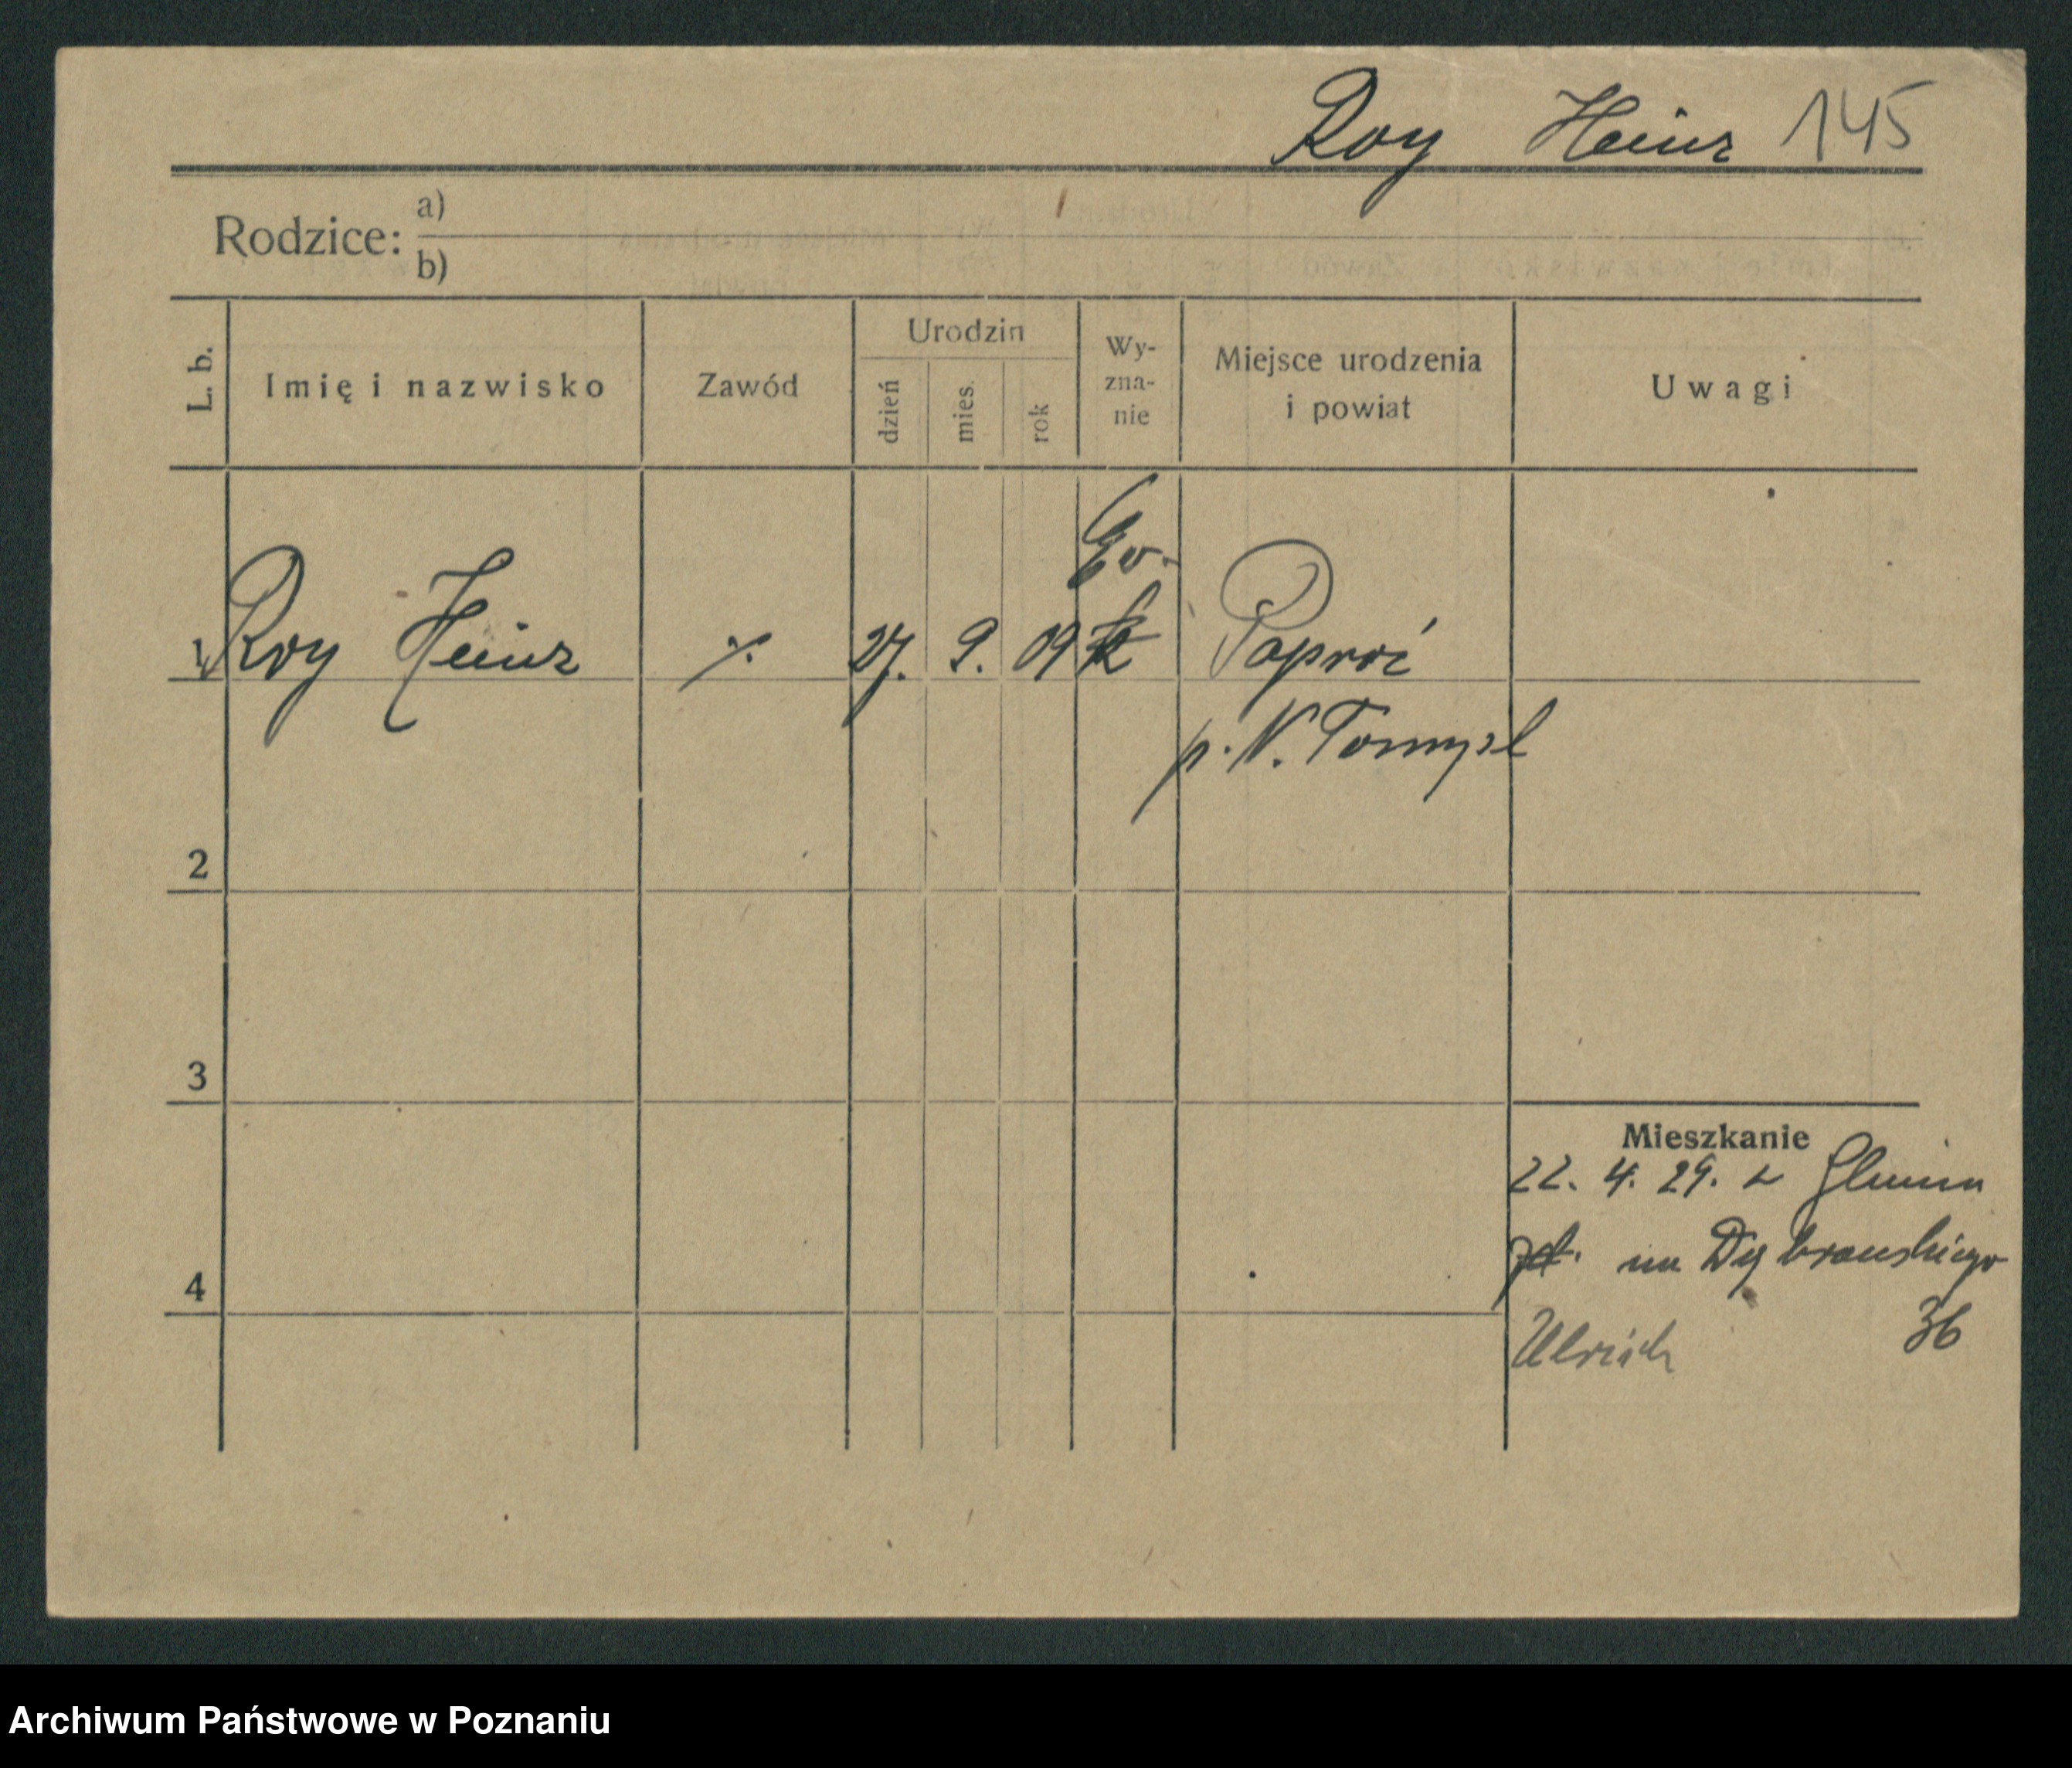 Roy Heinz 145
Rodzice: a)
b)
L. b.
Imię i nazwisko
Zawód
Urodzin
dzień
mies.
rok
Wy-
zna-
nie
Miejsce urodzenia
i powiat
Uwagi
Ev.
1 Roy Heinz ./. 27. 9. 09 k Paproć
p. N. Tomysl
2
3
Mieszkanie
22. 4. 29. z
na Dąbrowskiego
4
36
Ulrich
Archiwum Państwowe w Poznaniu